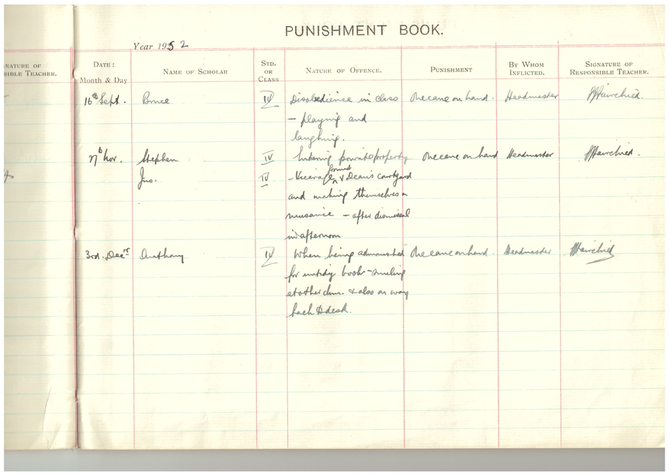 PUNISHMENT BOOK.
Year 1952
SIGNATURE OF
RESPONSIBLE TEACHER.
DATE:
Month & Day
NAME OF SCHOLAR
STD.
OR
CLASS
NATURE OF OFFENCE.
PUNISHMENT
BY WHOM
INFLICTED.
SIGNATURE OF
RESPONSIBLE TEACHER.
16th Sept. Bruce IV Disobedience in class One cane on hand. Headmaster
- playing and
laughing.
7th Nov. Stephen IV private property One cane on hand Headmaster
Jno. IV - Vicarage & Dean's courtyard
and making themselves a
nuisance - after dismissal
in afternoon
3rd Decr Anthony IV When being admonished One cane on hand. Headmaster
for untidy book - smiling
at other chn. & also on way
back to desk.